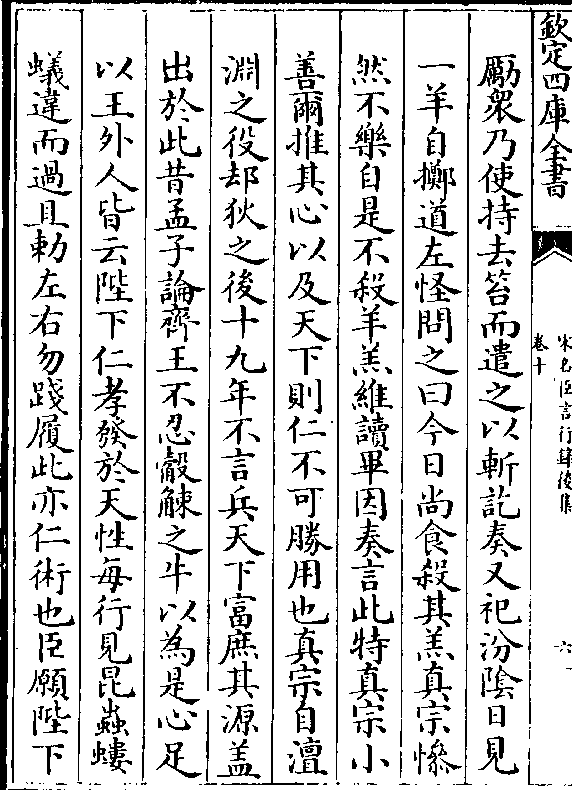 欽定四庫全書
宋名臣言行錄後集
卷十
六
勵衆乃使持去笞而遣之以斬訖奏又祀汾陰日見
一羊自擲道左怪問之曰今日尚食殺其羔真宗慘
然不樂自是不殺羊羔維讀畢因奏言此特真宗小
善爾推其心以及天下則仁不可勝用也真宗自澶
淵之役却狄之後十九年不言兵天下富庶其源盖
出於此昔孟子論齊王不忍觳觫之牛以為是心足
以王外人皆云陛下仁孝發於天性每行見昆蟲螻
蟻違而過且勅左右勿踐履此亦仁術也臣願陛下